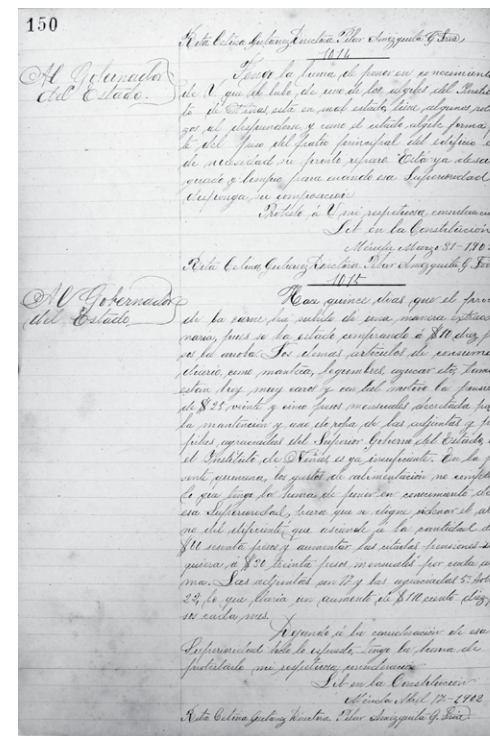 150
Rita Cetina Gutiérrez Directora Pilar Amézquita G. Sria.
1014
Al Gobernador
del Estado.
Tengo la honra de poner en conocimiento
de U que el tubo de uno de los algibes del Instituto
to de Niñas, está en mal estado, tiene algunos
al desprenderse, y como el citado algibe forma
te del piso del patio principal del edificio
de necesidad su pronto reparo. Está ya desa
guado y limpio, para cuando esa Superioridad
disponga su composición
Protesto á U mi respetuosa consideración
Lib en la Constitución
Mérida Marzo 31-190
Rita Cetina Gutiérrez Directora Pilar Amézquita G. Sria
1015
Al Gobernador
del Estado
Hace quince días que el precio
de la carne ha subido de una manera
naria, pues se ha estado comprando á $10 diez p
sos la arroba. Los demas artículos de consumo
diario, como manteca, legumbres, azucar etc,
están hoy muy caros y con tal motivo la pensión
de $25 veinte y cinco pesos mensuales decretada pa
la manutención y uso de ropa de las adjuntas y p
pilas, agraciadas del Superior Gobierno del Estado,
el Instituto de Niñas es ya insuficiente. En la p
sente quincena, los gastos de alimentación
lo que tengo la honra de poner en conocimiento de
esa Superioridad, para que se digne ordenar el
no del deficiente que asciende á la cantidad de
sesenta pesos y aumentar las citadas pensiones
quiera á $30 treinta pesos mensuales por cada
na. Las adjuntas son 17 y las agraciadas 5.
22, lo que haría un aumento de $110 ciento diez
sos cada mes.
Dejando á la consideración de esa
Superioridad todo lo espuesto, tengo la honra de
protestarle mi respetuosa consideración
Lib en la Constitución
Mérida Abril 17-1902
Rita Cetina Gutiérrez Directora Pilar Amézquita G. Sria.